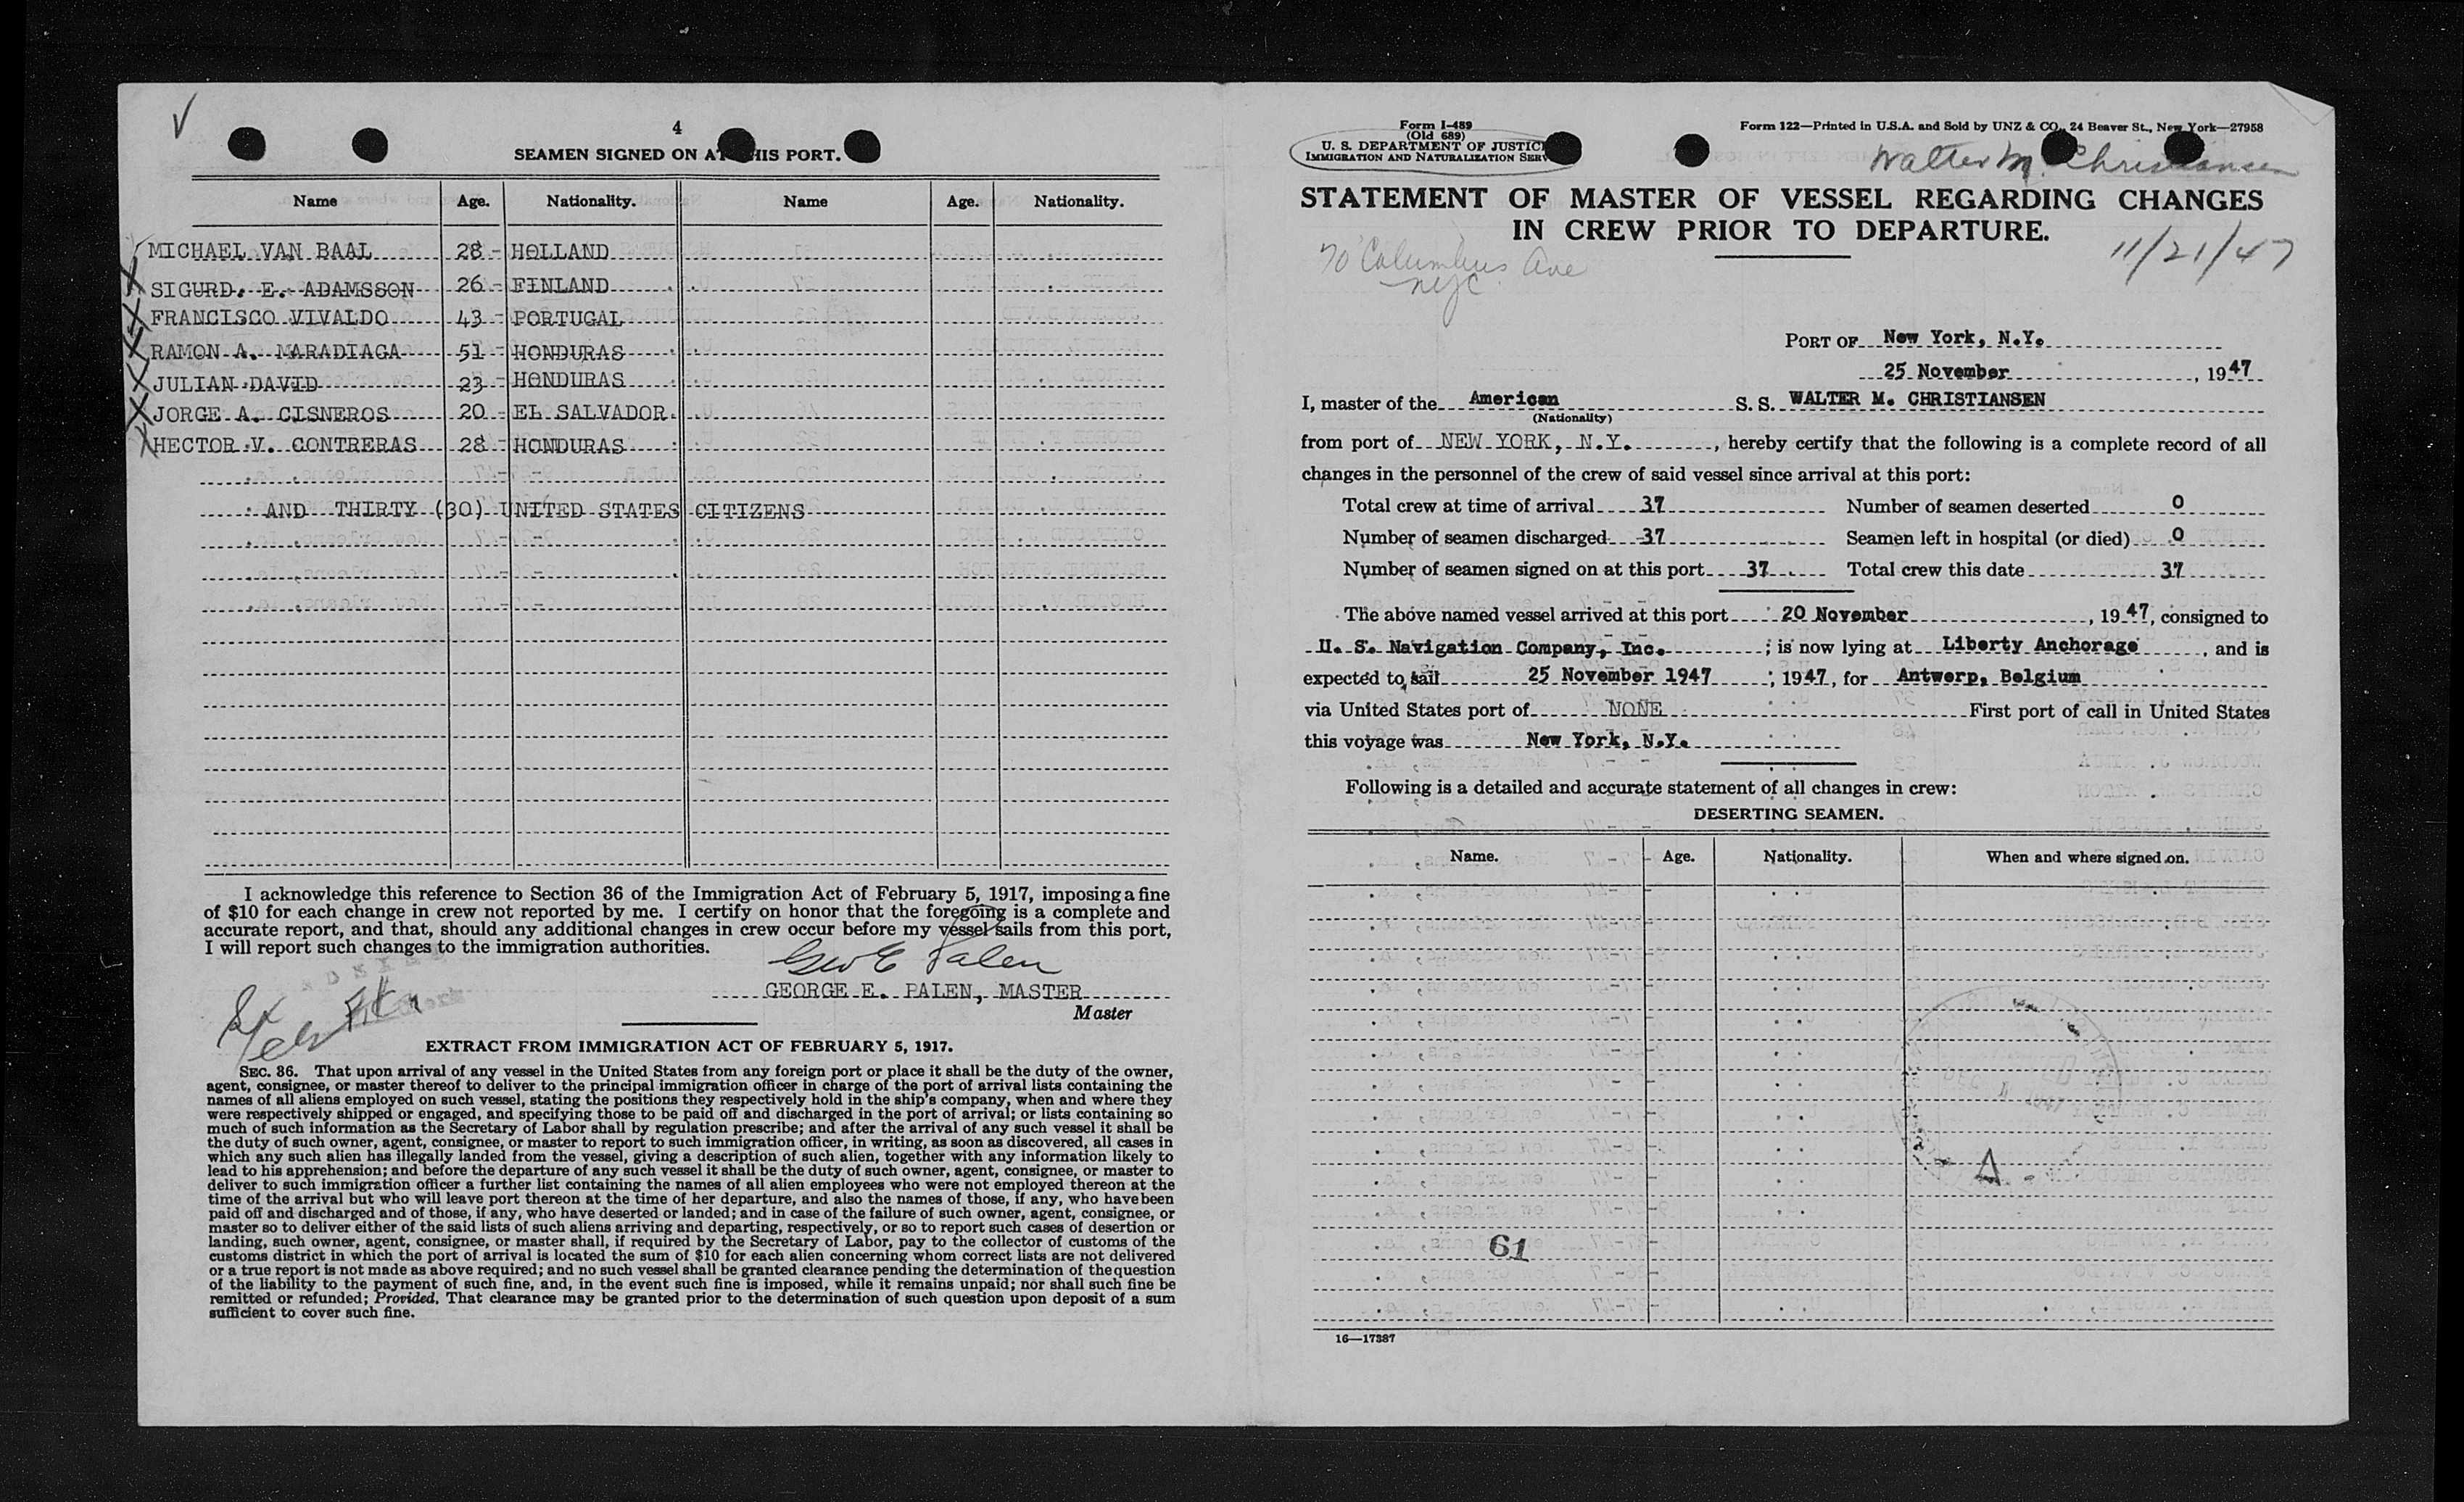 4
SEAMEN SIGNED ON AT THIS PORT.
Name Age. Nationality. Name Age. Nationality.
MICHAEL VAN BAAL 28 - HOLLAND
SIGURD. E. ADAMSSON 26 - FINLAND
FRANCISCO VIVALDO 43 - PORTUGAL
RAMON A. MARADIAGA 51 - HONDURAS
JULIAN DAVID 23 - HONDURAS
JORGE A. CISNEROS 20 - EL SALVADOR
HECTOR V. CONTRERAS 28 - HONDURAS
AND THIRTY (30) UNITED STATES CITIZENS
I acknowledge this reference to Section 36 of the Immigration Act of February 5, 1917, imposing a fine
of $10 for each change in crew not reported by me. I certify on honor that the foregoing is a complete and
accurate report, and that, should any additional changes in crew occur before my vessel sails from this port,
I will report such changes to the immigration authorities.
Geo E Palen
GEORGE E. PALEN, MASTER
Master
EXTRACT FROM IMMIGRATION ACT OF FEBRUARY 5, 1917.
SEC. 36. That upon arrival of any vessel in the United States from any foreign port or place it shall be the duty of the owner,
agent, consignee, or master thereof to deliver to the principal immigration officer in charge of the port of arrival lists containing the
names of all aliens employed on such vessel, stating the positions they respectively hold in the ship's company, when and where they
were respectively shipped or engaged, and specifying those to be paid off and discharged in the port of arrival; or lists containing so
much of such information as the Secretary of Labor shall by regulation prescribe; and after the arrival of any such vessel it shall be
the duty of such owner, agent, consignee, or master to report to such immigration officer, in writing, as soon as discovered, all cases in
which any such alien has illegally landed from the vessel, giving a description of such alien, together with any information likely to
lead to his apprehension; and before the departure of any such vessel it shall be the duty of such owner, agent, consignee, or master to
deliver to such immigration officer a further list containing the names of all alien employees who were not employed thereon at the
time of the arrival but who will leave port thereon at the time of her departure, and also the names of those, if any, who have been
paid off and discharged and of those, if any, who have deserted or landed; and in case of the failure of such owner, agent, consignee, or
master so to deliver either of the said lists of such aliens arriving and departing, respectively, or so to report such cases of desertion or
landing, such owner, agent, consignee, or master shall, if required by the Secretary of Labor, pay to the collector of customs of the
customs district in which the port of arrival is located the sum of $10 for each alien concerning whom correct lists are not delivered
or a true report is not made as above required; and no such vessel shall be granted clearance pending the determination of the question
of the liability to the payment of such fine, and, in the event such fine is imposed, while it remains unpaid; nor shall such fine be
remitted or refunded; Provided, That clearance may be granted prior to the determination of such question upon deposit of a sum
sufficient to cover such fine.
Form I-489
(Old 689)
U. S. DEPARTMENT OF JUSTIC
IMMIGRATION AND NATURALIZATION SERV
Form 122—Printed in U.S.A. and Sold by UNZ & CO., 24 Beaver St., New York—27958
Walter M. Christiansen
STATEMENT OF MASTER OF VESSEL REGARDING CHANGES
IN CREW PRIOR TO DEPARTURE.
70 Columbus Ave
nyc
11/21/47
PORT OF New York, N.Y.
25 November, 1947
I, master of the American S. S. WALTER M. CHRISTIANSEN
(Nationality)
from port of NEW YORK, N.Y., hereby certify that the following is a complete record of all
changes in the personnel of the crew of said vessel since arrival at this port:
Total crew at time of arrival 37 Number of seamen deserted 0
Number of seamen discharged 37 Seamen left in hospital (or died) 0
Number of seamen signed on at this port 37 Total crew this date 37
The above named vessel arrived at this port 20 November, 1947, consigned to
U. S. Navigation Company, Inc. ; is now lying at Liberty Anchorage, and is
expected to sail 25 November 1947 ; 1947, for Antwerp, Belgium
via United States port of NONE First port of call in United States
this voyage was New York, N.Y.
Following is a detailed and accurate statement of all changes in crew:
DESERTING SEAMEN.
Name. Age. Nationality. When and where signed on.
61
16—17387